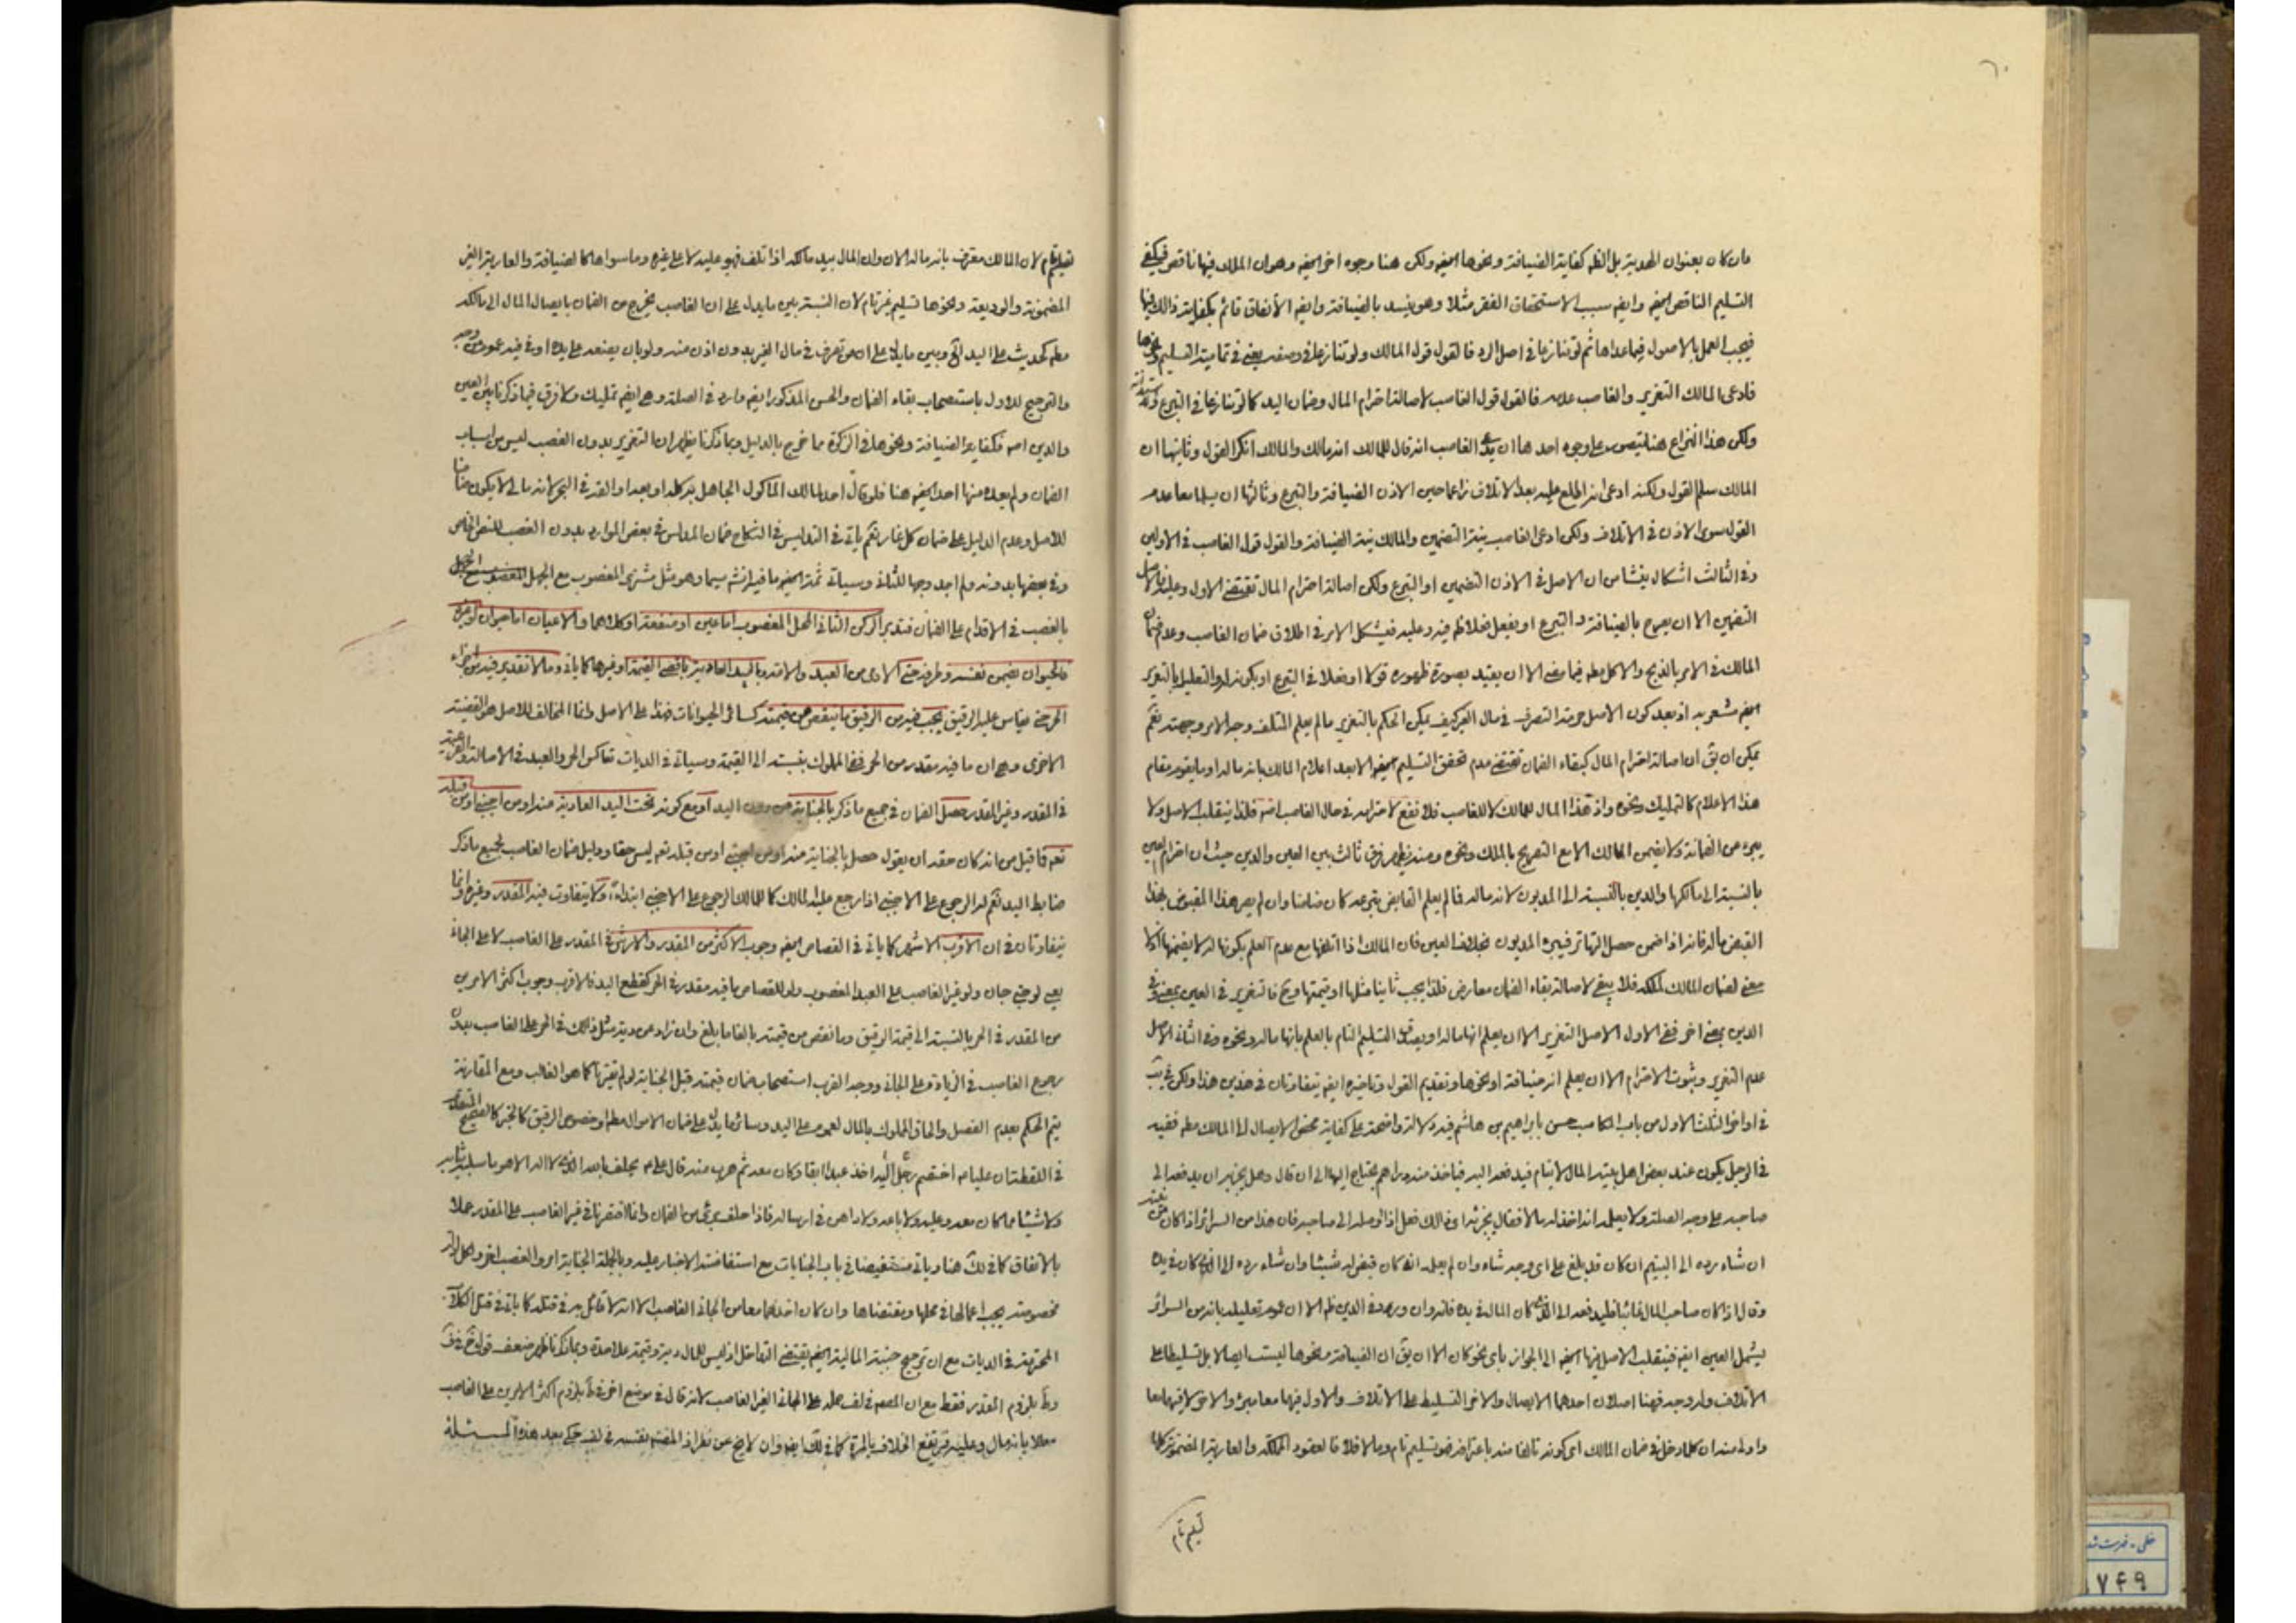 ٦٠
وان كان بعنوان الهدية بل الظ كفاية الضيافة ونحوها ايضا ولكن هنا وجوه اخر ايضا وهو ان الملك فيها ناقص فيكفي
التسليم الناقص ايضا وايضا سبب الاستحقاق الفقر مثلا وهو يفسد بالضيافة وايضا الانفاق قائم
فيجب العمل بالاصول فيما عداها ثم لو تنازعا في اصل الرد فالقول قول المالك ولو تنازعا في وصفه يعني في تمامية التسليم ونحوها
فادعى المالك التغرير والغاصب عدمه فالقول قول الغاصب لاصالة احترام المال وضمان اليد كما لو تنازعا في التبرع
ولكن هذا النزاع هنا يتصور على وجوه احدها ان يدعي الغاصب انه قال للمالك انه مالك والمالك انكر القول وثانيها ان
المالك سلم القول ولكنه ادعى انه اطلع عليه بعد الاتلاف زاعما حين الاذن الضيافة والتبرع وثالثها ان يسلما معا عدم
القول سوى الاذن في الاتلاف ولكن ادعى الغاصب نية التضمين والمالك نية الضيافة والقول قول الغاصب في الاولين
وفي الثالث اشكال ينشأ من ان الاصل في الاذن التضمين او التبرع ولكن اصالة احترام المال تقتضي الاول وعليه فالاصل
التضمين الا ان يصرح بالضيافة والتبرع او يفعل فعلا ظ فيه وعليه فيشكل الامر في اطلاق ضمان الغاصب وعدم ضمان
المالك في الامر بالذبح والاكل مط فيما مضى الا ان يقيد بصورة ظهوره قولا او فعلا في التبرع او يكون التعليل بالتغرير
ايضا مشعر به اذ بعد كون الاصل حرمة التصرف في مال الغير كيف يمكن الحكم بالتغرير ما لم يعلم المتلف وجه الامر وجهته نعم
يمكن ان يق ان اصالة احترام المال كبقاء الضمان تقتضي عدم تحقق التسليم ايضا الا بعد اعلام المالك بانه ماله او ما يقوم مقام
هذا الاعلام كالتمليك ونحوه واذ هذا المال للمالك لا للغاصب فلا نفع لاحترامه في حال الغاصب اصلا فلذا ينقلب الاصل ولا
يبرء من الضمان ولا يضمن المالك الا مع التصريح بالملك ونحوه ومنه يظهر فرق ثالث بين العين والدين حيث ان احترام العين
بالنسبة الى مالكها والدين بالنسبة الى المديون لانه ماله فما لم يعلم القابض بتبرعه كان ضامنا وان لم يصر هذا المقبوض بهذا
القبض ماله فانه اذا ضمن حصل التهاتر فيبرء المديون بخلاف العين فان المالك اذا اتلفها مع عدم العلم بكونها له لا يضمنها اذ لا
معنى لضمان المالك لملكه فلا يبقى لاصالة بقاء الضمان معارض فلذا يجب ثانيا مثلها او قيمتها وح فالتغرير في العين بمعنى وفي
الدين بمعنى اخر ففي الاول الاصل التغرير الا ان يعلم انها ماله او يعقبه التسليم التام بالعلم بانها ماله ونحوه وفي الثاني الاصل
عدم التغرير وثبوت الاحترام الا ان يعلم انه ضيافة او نحوها وتقديم القول وتاخيره ايضا يتفاوتان في هذين هذا ولكن في يب
في اواخر الثلث الاول من باب المكاسب حسن بابراهيم بن هاشم فيه دلالة واضحة على كفاية محض الايصال الى المالك مط ففيه
في الرجل يكون عند بعض اهل بيته المال لايتام فيدفعه اليه فياخذ منه دراهم يحتاج اليها الى ان قال وهل يجزيه ان يدفعه الى
صاحبه على وجه الصلة ولا يعلمه انه اخذ له مالا فقال يجزئه اي ذلك فعل اذا اوصله الى صاحبه فان هذا من السرائر اذا كان من نيته
ان شاء رده الى اليتيم ان كان قد بلغ على اي وجه شاء وان لم يعلمه انه كان قبض له شيئا وان شاء رده الى الذي كان في يده
وقال اذا كان صاحب المال غائبا فليدفعه الى الذي كان المال في يده فانه وان ورد في الدين ظ الا ان عموم تعليله بانه من السرائر
يشمل العين ايضا فينقلب الاصل فيها ايضا الى الجواز باي نحو كان الا ان يق ان الضيافة ونحوها ليست ايصالا بل تسليطا على
الاتلاف وله وجه فهنا اصلان احدهما الايصال والاخر التسليط على الاتلاف والاول فيهما معا مبرئ والاخر لا فيهما معا
واولى منه ان كلما دخل في ضمان المالك اي كونه تالفا منه باعترافه فهو تسليم تام وما لا فلا فالعقود المملكة والعارية المضمونة كلها
تسليم تام
تسليم تام لان المالك معترف بانه ماله الان وان المال بيد مالكه اذا تلف فهو عليه لا على غيره وما سواها كالضيافة والعارية الغير
المضمونة والوديعة ونحوها تسليم غير تام لان النسبة بين ما يدل على ان الغاصب يخرج من الضمان بايصال المال الى مالكه
مط كحديث على اليد الخ وبين ما يدل على ان من تصرف في مال الغير بدون اذن منه ولو بان يضعه على يده او في فيه عموم من وجه
والترجيح للاول باستصحاب بقاء الضمان والحسن المذكور ايضا وارد في الصلة وهي ايضا تمليك ولا فرق فيما ذكرنا بين العين
والدين اصلا فكفاية الضيافة ونحوها في الزكوة مما خرج بالدليل وبما ذكرنا يظهر ان التغرير بدون الغصب ليس من اسباب
الضمان ولم يعده منها احد ايضا هنا فلو قال احد لمالك المأكول الجاهل به كله او بعه او القه في البحر لانه مالي لا يكون ضامنا
للاصل وعدم الدليل على ضمان كل غار نعم ياتي في التدليس في النكاح ضمان المدلس في بعض الموارد بدون الغصب للنص الخاص
وفي بعضها بدونه ولم اجد وجها للثاني وسياتي ثمة ايضا ما فيه انشه سيما وهو مثل مشتري المغصوب مع الجهل
بالغصب في الاقدام على الضمان فتدبر الركن الثاني المحل المغصوب اما عين او منفعة او كلاهما والاعيان اما حيوان او غيره
فالحيوان يضمن نفسه وطرفه حتى الادمي من العبد والامة وباليد العادية باقصى القيمة او غيرها كما ياتي وما لا تقدير فيه من اجزاء
الحر حتى يقاس عليه الرقيق يجب فيه من الرقيق ما ينقص من قيمته كسائر الحيوانات فهذا على الاصل وانما المخالف للاصل هو القضية
الاخرى وهي ان ما فيه مقدر من الحر ففي المملوك بنسبته الى القيمة وسياتي في الديات تعاكس الحر والعبد في الاصالة والفرعية
في المقدر وغير المقدر حصل الضمان في جميع ما ذكر بالجناية من دون اليد او مع كونه تحت اليد العادية منه او من اجنبي او من قبله
تعه فما قيل من انه كان حقه ان يقول حصل بالجناية منه او من اجنبي او من قبله تعه ليس حقا ودليل ضمان الغاصب لجميع ما ذكر
ضابط اليد نعم له الرجوع على الاجنبي اذا رجع عليه المالك كما للمالك الرجوع على الاجنبي ابتداء ولا يتفاوت فيه المقدر وغيره وانما
يتفاوتان في ان الاقرب الاشهر كما ياتي في القصاص ايضا وجوب الاكثر من المقدر والارش في المقدر على الغاصب لا على الجاني
يعني لو جنى جان ولو غير الغاصب على العبد المغصوب ولو للقصاص بما فيه مقدر في الحر كقطع اليد فالاقرب وجوب اكثر الامرين
من المقدر في الحر بالنسبة الى قيمة الرقيق وما نقص من قيمته بالغا ما بلغ وان زاد عن دية مثل ذلك في الحر على الغاصب بدون
رجوع الغاصب في الزيادة على الجاني ووجه القرب استصحاب ضمان قيمته قبل الجناية لو لم يقترنا كما هو الغالب ومع المقارنة
يتم الحكم بعدم الفصل والحاق المملوك بالمال لعموم على اليد وسائر ما يدل على ضمان الاموال مط او خصوص الرقيق كالخبر كالصحيح المتقدم
في اللقطة ان عليا ع اختصم رجل اليه اخذ عبدا ابقا وكان معه ثم هرب منه قال على ع يحلف بالله الذي لا اله الا هو ما سلبه ثيابه
ولا شيئا مما كان معه وعليه ولا باعه ولا داهن في ارساله فاذا حلف برئ من الضمان وانما اقتصرنا في غير الغاصب على المقدر عملا
بالاتفاق كما في لك هنا وياتي مستفيضا في باب الجنايات مع استفاضة الاخبار عليه وبالجملة الجناية امر والغصب اخر ولكل اثار
مخصوصة يجب اعمالها في محلها ومقتضاها وان كان احدهما معا من الجاني الغاصب الا انه لا قائل به في قتله كما ياتي في قتل الكلاب
المحترمة في الديات مع ان ترجيح حيثية المالية ايضا يقتضي التداخل اذ ليس للمال دية وقيمة علاحدة وبما ذكرنا ظهر ضعف قول في ف
وط بلزوم المقدر فقط مع ان المصنف في لف حمله على الجاني الغير الغاصب لانه قال في موضع اخر في ط بلزوم اكثر الامرين على الغاصب
معللا بانه مال وعليه فيرتفع الخلاف بالمرة كما في لك ايضا وان لا يخ عن نظر اذ المصنف بنفسه في لف حكى بعد هذه المسئلة
خطی - فهرست شده
٧۴٩